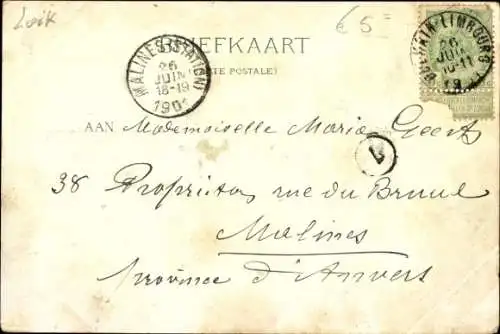 Luik
€5=
BRIEFKAART
(CARTE POSTALE)
MALINES (STATION)
26
JUIN
18-19
1901
LIMBOURG
26
JUIN
10-11
19
AAN Mademoiselle Maria Geerts
1
38 rue du Bruul
Malines
Province d'Anvers